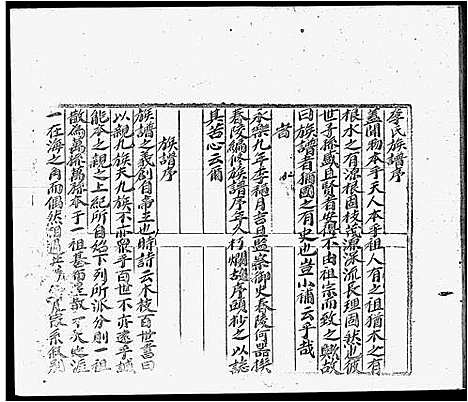 李氏族譜序
蓋聞物本乎天人本乎祖人有之祖猶木之有
根水之有源根固枝茂源深流長理固然也彼
世子孫盛且賢者安得不由祖宗而致之歟故
曰族譜者猶國之有史也豈小補云乎哉
旹
永樂九年季穐月吉旦監察御史春陵何器撰
春陵編修族譜序年久朽爛謹序頭抄之以誌
其苦心云爾
族譜序
族譜之義創自帝王也時詩云本枝百世書曰
以親九族夫九族不亦眾乎百世不亦遠乎誠
能本之親之上紀所自始下列所派分則一祖
散為萬孫萬孫本于一祖基布星散一天之涯
一在海之角而偶然相遇